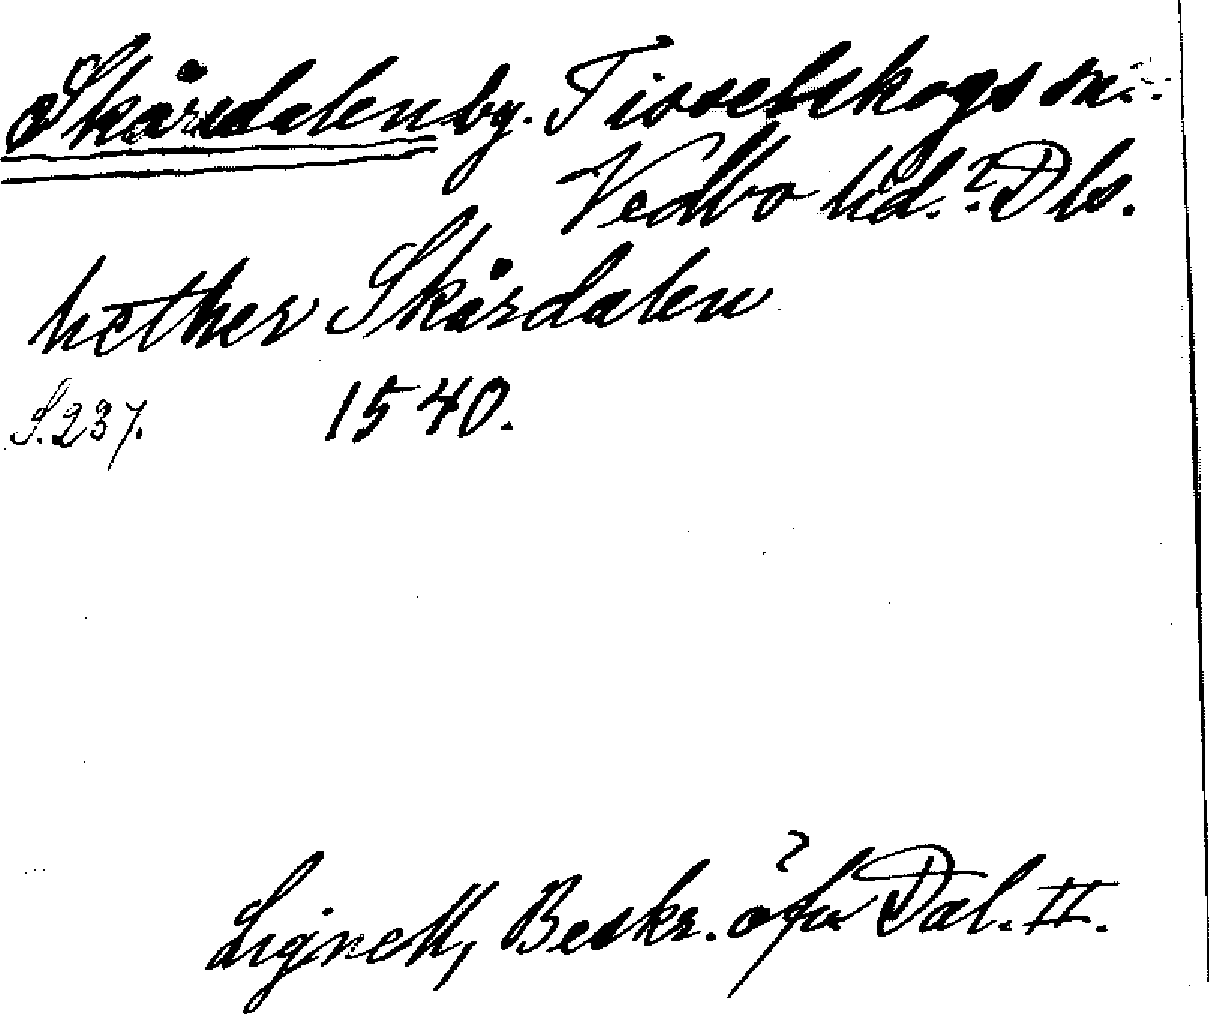 Skårsdalen by. Tisselskogs sn.
Vedbo hd.? Dls.
hether Skårdalen
S. 237. 1540.
Lignell, Beskr. öfver Dal. II.